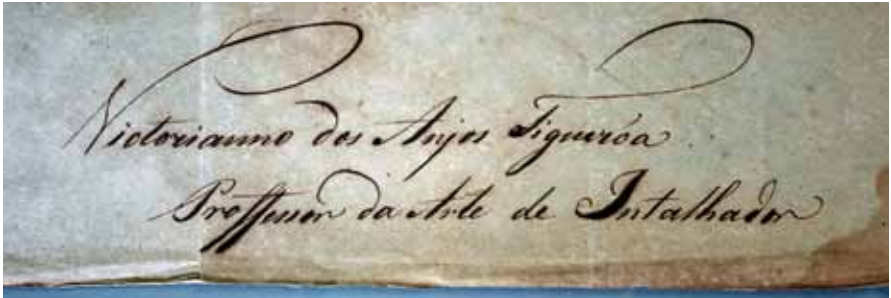 Victorianno dos Anjos Figuerôa
Proffessor da Arte de Intalhador